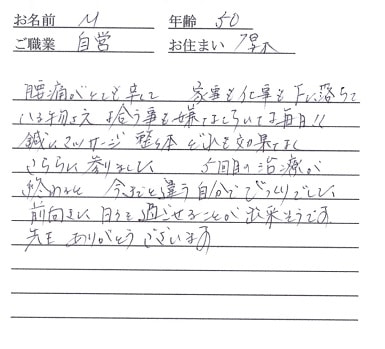 お名前 M 年齢 50
ご職業 自営 お住まい 厚木
腰痛がとても辛くて 家事も仕事も下に落ちて
いる物さえ 拾う事も嫌 毎日!!
鍼 マッサージ 整体 どれも効果なく
こちらに参りました 5回目の治療が
終わると 今までと違う自分でびっくりでした
前向きに 日々を過ごせることが出来そうです
先生 ありがとうございます